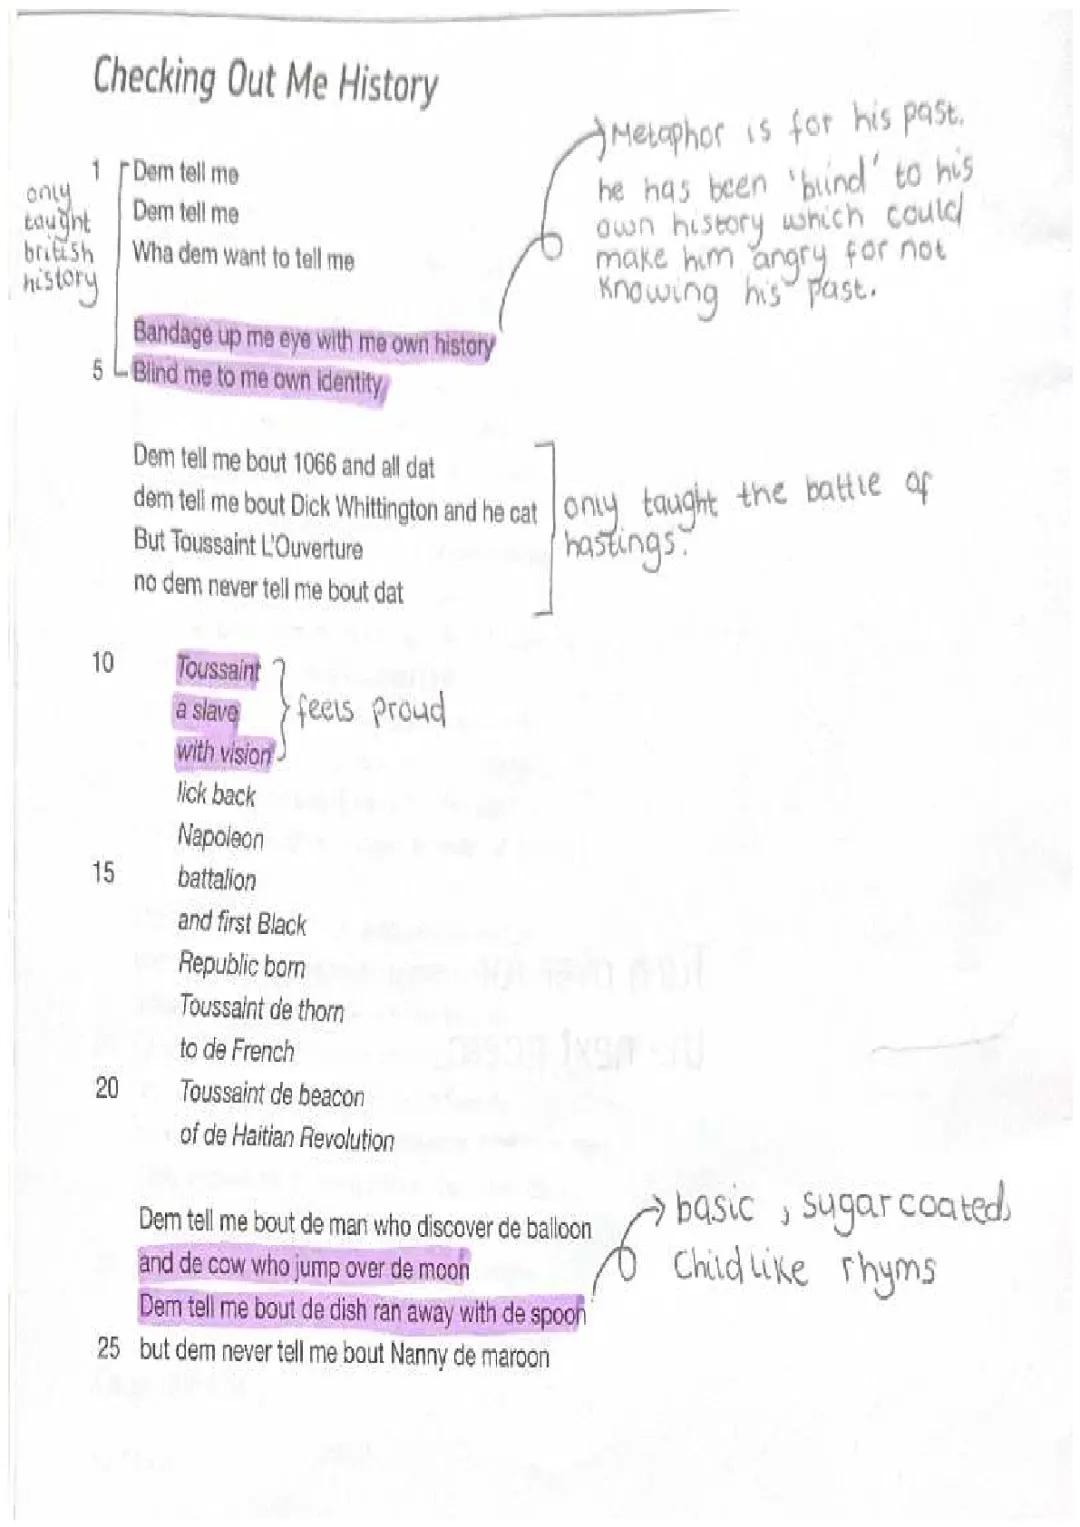 Checking Out Me History
Metaphor is for his past.
he has been 'blind' to his
own history which could
make him angry for not
knowing his past.
only
taught
british
history
1 Dem tell me
Dem tell me
Wha dem want to tell me
Bandage up me eye with me own history
5 Blind me to me own identity
Dem tell me bout 1066 and all dat
dem tell me bout Dick Whittington and he cat
But Toussaint L'Ouverture
no dem never tell me bout dat
only taught the battle of
hastings.
10 Toussaint
a slave
with vision
feels proud
lick back
Napoleon
15 battalion
and first Black
Republic born
Toussaint de thorn
to de French
20 Toussaint de beacon
of de Haitian Revolution
Dem tell me bout de man who discover de balloon
and de cow who jump over de moon
Dem tell me bout de dish ran away with de spoon
25 but dem never tell me bout Nanny de maroon
basic, sugarcoated,
Childlike rhyms